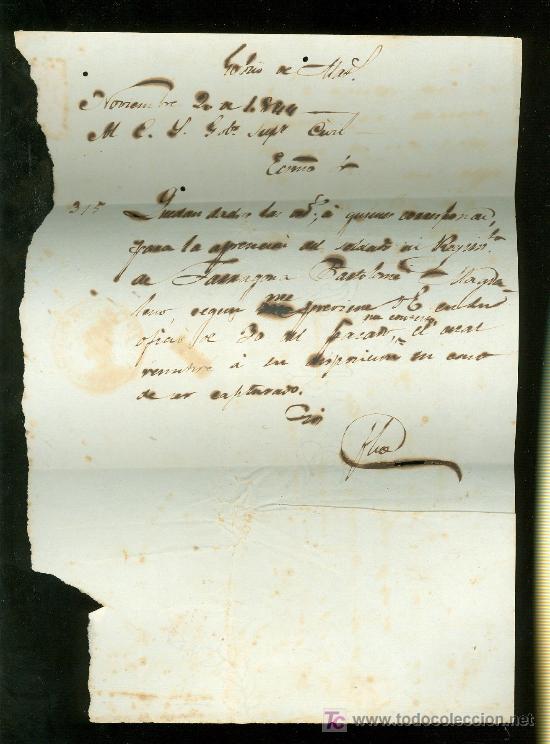 Gobno de Mad.
Noviembre 20 de 1844
M. C. S. Gobr Supr Civil
Ecmo Sr
315 Quedan dadas las ords, á quienes corresponde,
para la aprencion del soldado del Regim.to
de Tarragona Bartolomé Magda-
leno, segun me previene V.E. en su
oficio de 30 del pasado, el cual
remitiré á su disposicion en caso
de ser capturado.
Dio
TC www.todocoleccion.net